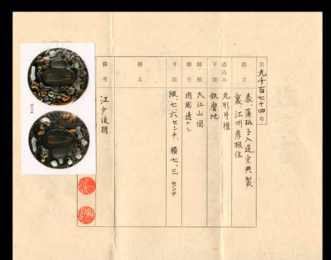 第九千百七十四号
銘文
表 藻柄子入道宗典製
裏 江州彦根住
造込み
丸形片櫃
下地
鉄磨地
図柄
大江山図
彫り
肉彫透かし
寸法
縦七.六センチ、横七.三センチ
備考
江戸後期